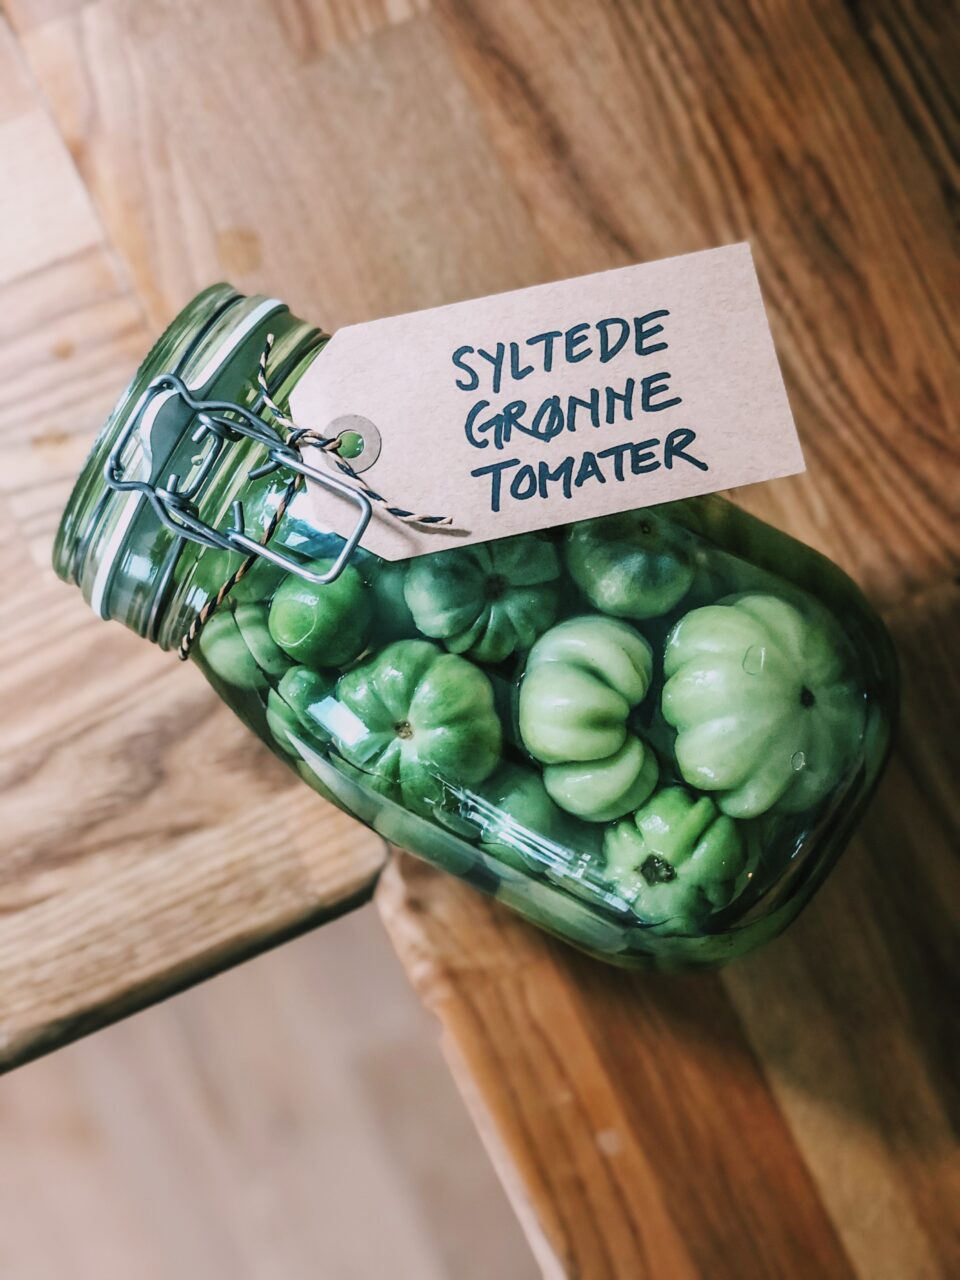 SYLTEDE
GRØNNE
TOMATER